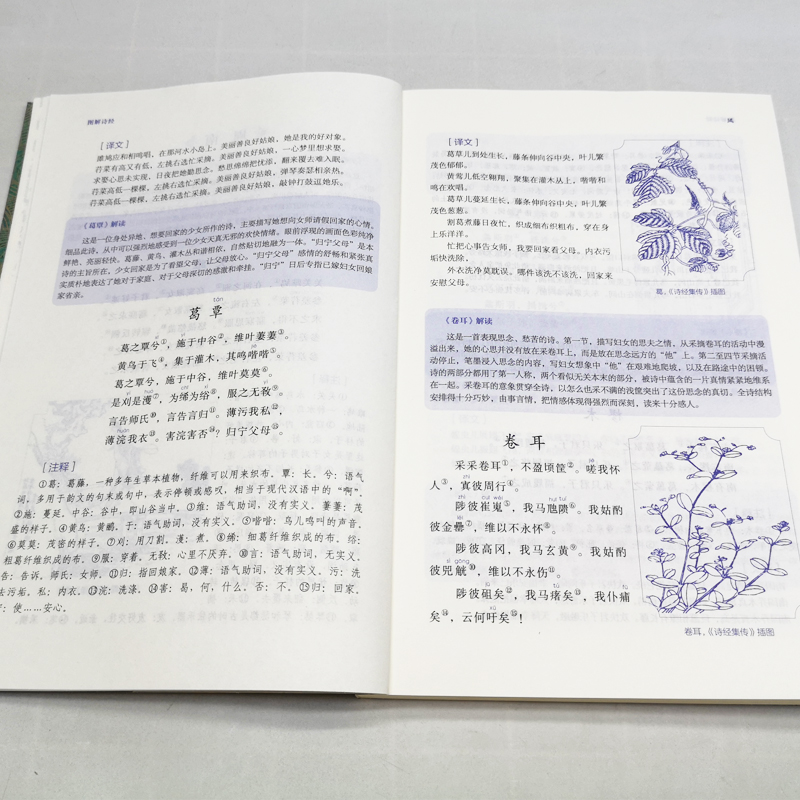 图解诗经
［译文］
雎鸠应和相鸣唱，在那河水小岛上。美丽善良好姑娘，她是我的好对象。
荇菜有高又有低，左挑右选忙采摘。美丽善良好姑娘，一心梦里想求娶。
求娶心思未实现，日夜把她勤思念。愁思绵绵把忧添，翻来覆去难入眠。
荇菜高低一棵棵，左挑右选忙采摘。美丽善良好姑娘，弹琴奏瑟相亲热。
荇菜高低一棵棵，左挑右选忙采摘。美丽善良好姑娘，敲钟打鼓逗她乐。
《葛覃》解读
这是一位身处异地，想要回家的少女所作的诗，主要描写她想向女师请假回家的心情。
细品此诗，从中可以强烈地感受到一位少女天真无邪的欢快情绪。眼前浮现的画面色彩纯净
鲜艳、亮丽轻快。葛藤、黄鸟、灌木丛和谐相依，自然贴切地融为一体。“归宁父母”是本
诗的主旨所在，少女回家是为了看望父母，让父母放心。“归宁父母”感情的舒畅和紧张真
实质朴地表达了她对于家庭、对于父母深切的感激和牵挂。“归宁”日后专指已嫁妇女回娘
家省亲。
tán
葛 覃
葛之覃兮①，施于中谷②，维叶萋萋③。
黄鸟于飞④，集于灌木，其鸣喈喈⑤。
葛之覃兮，施于中谷，维叶莫莫⑥。
是刈是濩⑦，为𫄨为绤⑧，服之无斁⑨。
言告师氏⑩，言告言归⑪。薄污我私⑫，
薄浣我衣⑬。害浣害否⑭？归宁父母⑮。
［注释］
①葛：葛藤，一种多年生草本植物，纤维可以用来织布。覃：长。兮：语气
词，多用于韵文的句末或句中，表示停顿或感叹，相当于现代汉语中的“啊”。
②施：蔓延。中谷：谷中，即山谷当中。③维：语气助词，没有实义。萋萋：茂
盛的样子。④黄鸟：黄鹂。于：语气助词，没有实义。⑤喈喈：鸟儿鸣叫的声音。
⑥莫莫：茂密的样子。⑦刈：用刀割。濩：煮。⑧𫄨：细葛纤维织成的布。绤：
粗葛纤维织成的布。⑨服：穿着。无斁：心里不厌弃。⑩言：语气助词，无实义。
告：告诉。师氏：女师。⑪归：指回娘家。⑫薄：语气助词，没有实义。污：洗
去污垢。私：内衣。⑬浣：洗涤。⑭害：曷，何，什么。否：不。⑮归：回家。
：使……安心。
［译文］
葛草儿到处生长，藤条伸向谷中央，叶儿繁
茂色郁郁。
黄莺儿低空翱翔，聚集在灌木丛上，喈喈和
鸣在欢唱。
葛草儿蔓延生长，藤条伸向谷中央，叶儿繁
茂色葱葱。
割葛煮藤日夜忙，织成细布织粗布，穿在身
上乐洋洋。
忙把心事告女师，我要回家看父母。内衣污
垢快洗除，
外衣洗净莫耽误。哪件该洗不该洗，回家来
安慰父母。
葛，《诗经集传》插图
《卷耳》解读
这是一首表现思念、愁苦的诗。第一节，描写妇女的思夫之情，从采摘卷耳的活动中漫
溢出来，她的心思并没有放在采卷耳上，而是放在思念远方的“他”上。第二至四节采摘活
动停止，笔墨浸入思念的内容，写妇女想象中“他”在艰难地爬坡，以及在路途中的困顿。
诗的两部分都用了第一人称，两个看似无关本末的部分，被诗中蕴含的一片真情紧紧地维系
在一起。采卷耳的意象贯穿全诗，以怎么也采不满的浅筐突出了这份思念的真切。全诗结构
安排得十分巧妙，由事言情，把情感体现得强烈而深刻，读来十分感人。
卷 耳
采采卷耳①，不盈顷筐②。嗟我怀
人③，寘彼周行④。
陟彼崔嵬⑤，我马虺隤⑥。我姑酌
彼金罍⑦，维以不永怀⑧。
陟彼高冈，我马玄黄⑨。我姑酌
彼兕觥⑩，维以不永伤⑪。
陟彼砠矣⑫，我马瘏矣⑬，我仆痡
矣⑭，云何吁矣⑮！
卷耳，《诗经集传》插图